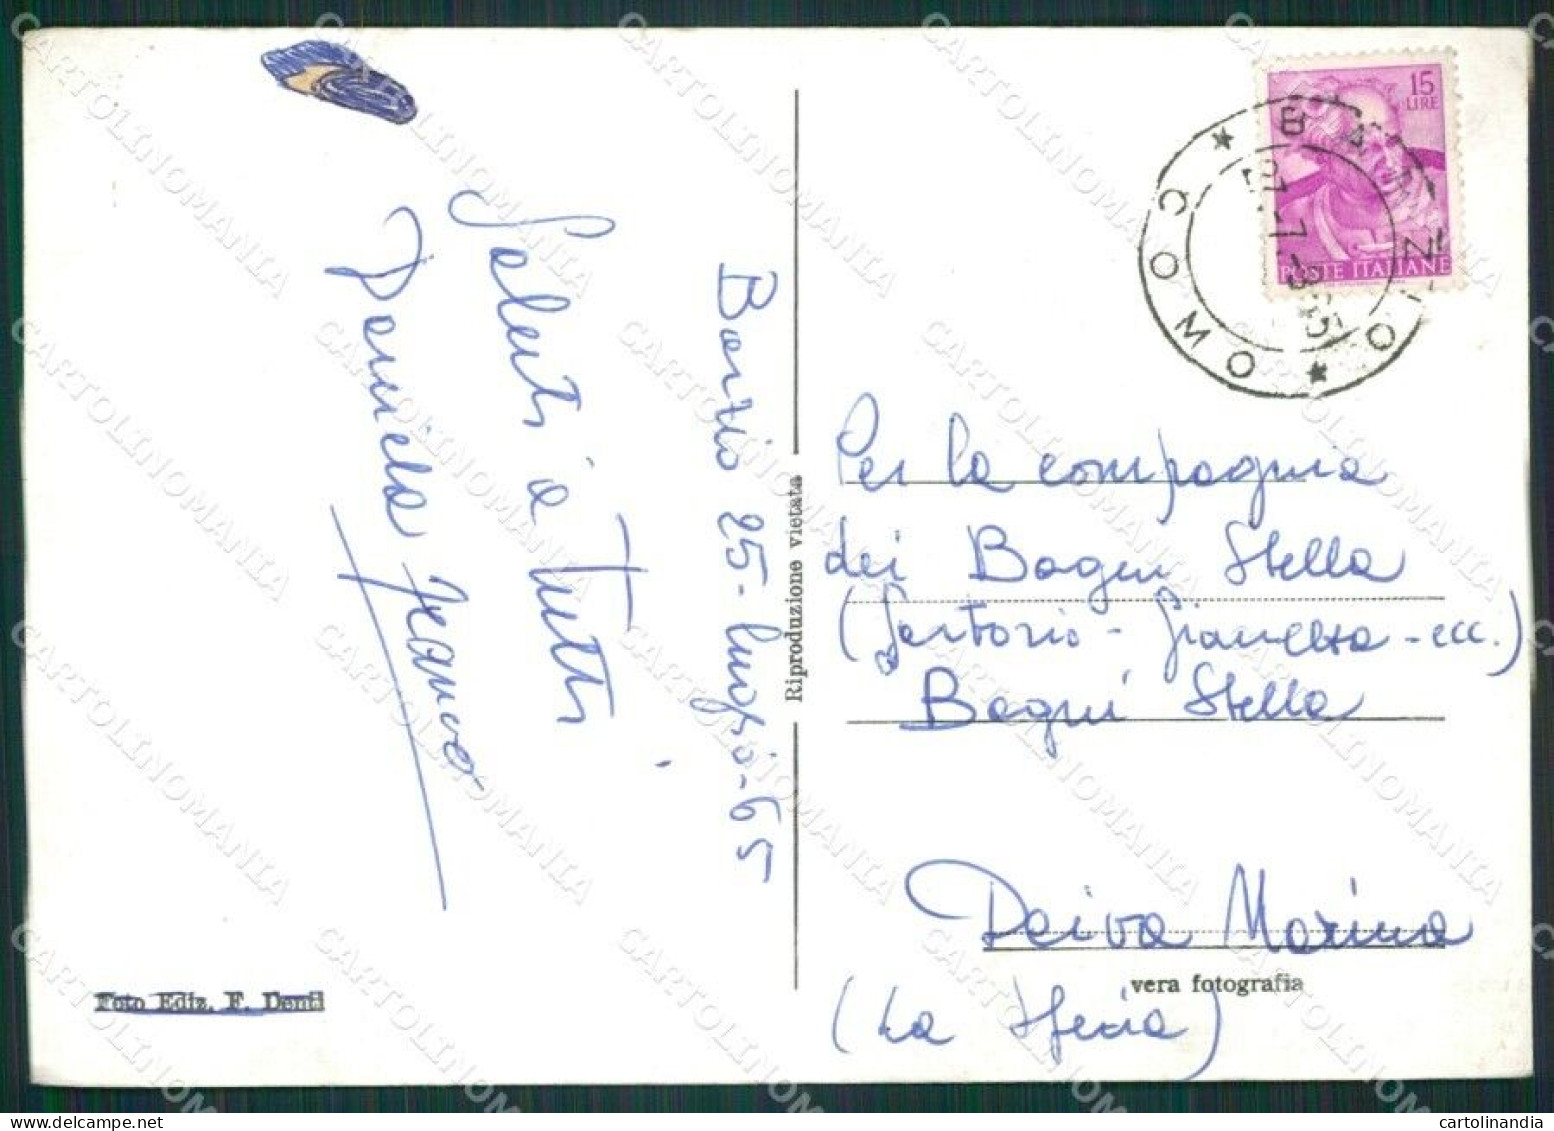 Saluti a tutti
Daniela
Barzio 25-luglio-65
Riproduzione vietata
Foto Ediz. F. Denti
15
LIRE
POSTE ITALIANE
★ BARZIO ★ COMO
Per la compagnia
dei Bagni Stella
(Sartorio - Giancelsa - ecc.)
Bagni Stella
Deiva Marina
vera fotografia
(La Spezia)
CARTOLINOMANIA
cartolinandia